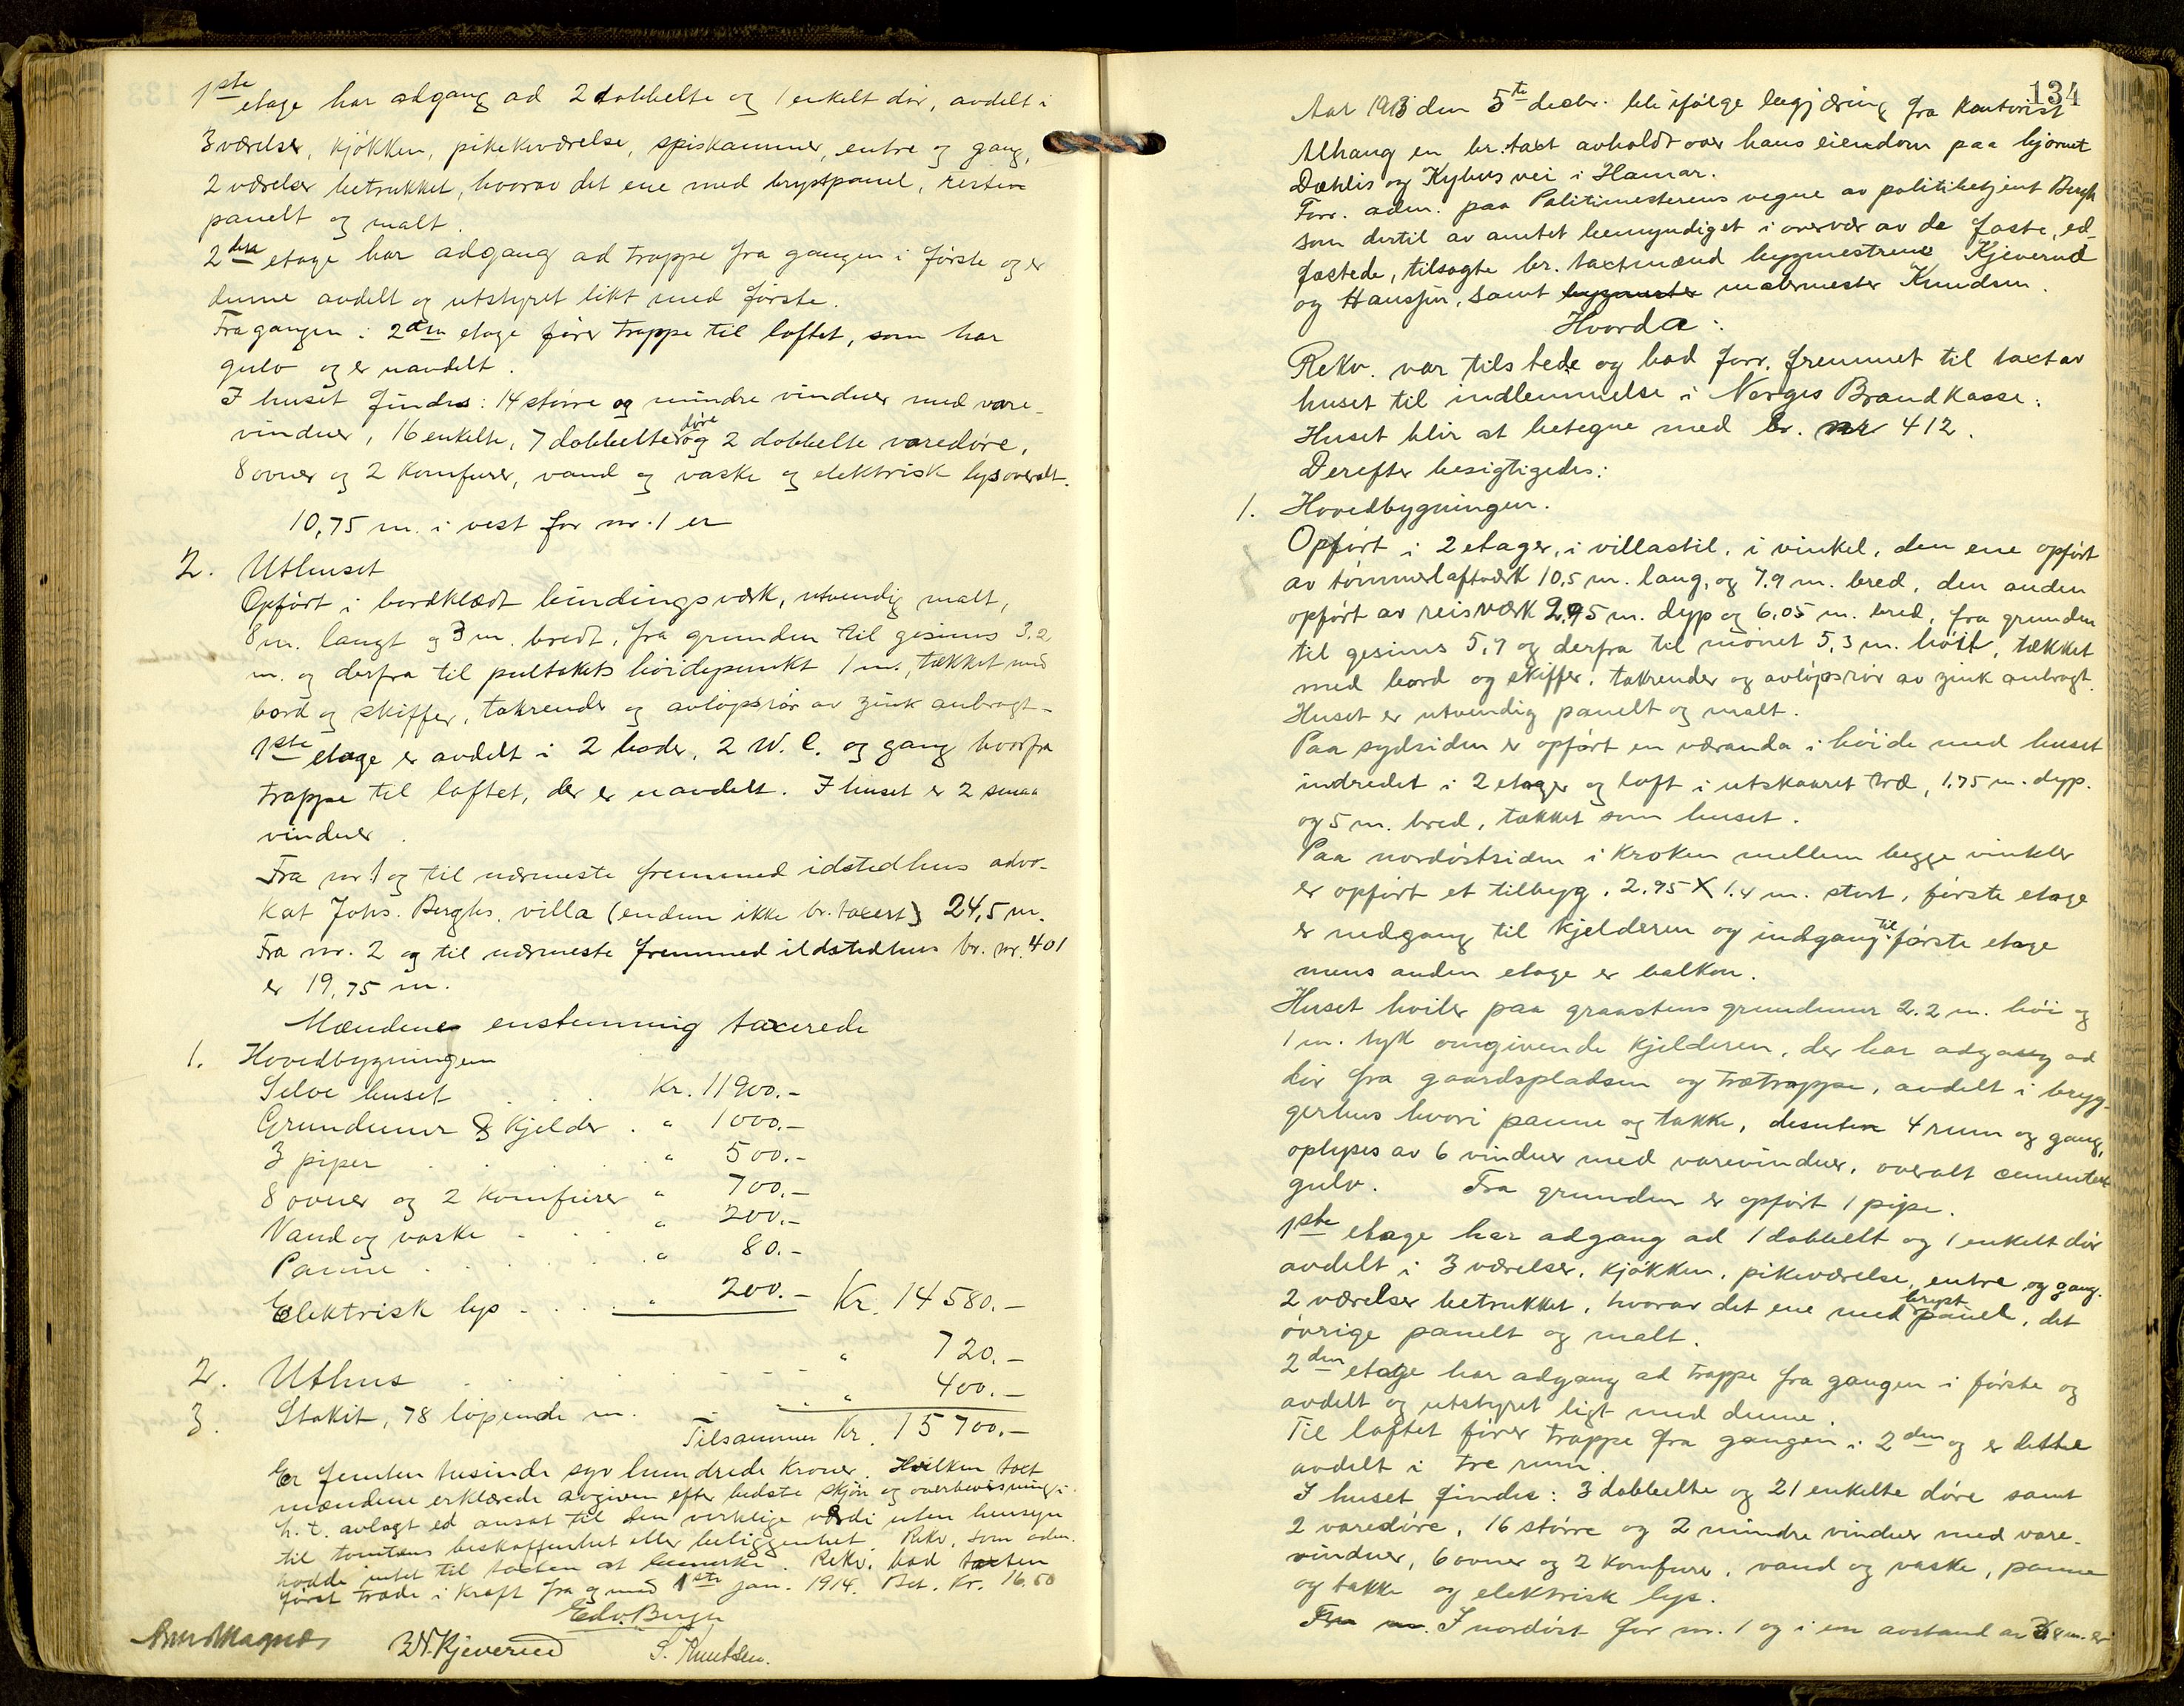 1ste etage har adgang ad 2 dobbelte og 1 enkelt dør, avdelt i
3 værelser, kjøkken, pikekeværelse, spiskammer, entre og gang,
2 værelser betrukket, hvorav det ene med brystpanel, resten
panelt og malt.
2den etage har adgang ad trappe fra gangen i første og er
denne avdelt og utstyret likt med første.
Fra gangen i 2den etage fører trappe til loftet, som har
gulv og er uavdelt.
I huset findes: 14 større og mindre vinduer med vare-
vinduer, 16 enkelte, 7 dobbelte døre og 2 dobbelte varedøre,
8 ovner og 2 komfurer, vand og vaske og elektrisk lys overalt.
10,75 m. i vest for nr. 1 er
2. Uthuset
Opført i bordklædt bindingsværk, utvendig malt,
8 m. langt og 3 m. bredt, fra grunden til gesims 3,2
m. og derfra til pultakets høidepunkt 1 m., tækket med
bord og skiffer, takrender og avløpsrør av zink anbragt-
1ste etage er avdelt i 2 boder, 2 W. C. og gang hvorfra
trappe til loftet, der er uavdelt. I huset er 2 smaa
vinduer.
Fra nr 1 og til nærmeste fremmed idstedhus advo-
kat Johs. Berghs. villa (endnu ikke br. taxert) 24,5 m.
Fra nr. 2 og til nærmeste fremmed ildstedhus br. nr. 401
er 19,75 m.
Mændene enstemmig taxerede
1. Hovedbygningen
Selve huset . . . Kr. 11900.-
Grundmur & kjelder . " 1000.-
3 piper . . . " 500.-
8 ovner og 2 komfurer " 700.-
Vand og vaske . . " 200.-
Panne . . . " 80.-
Elektrisk lys . . . " 200.- Kr. 14580.-
2. Uthus . . . " 720.-
3. Stakit, 78 løpende m. . . " 400.-
Tilsammen Kr. 15700.-
Er femten tusinde syv hundrede kroner. Hvilken taxt
mændene erklærede avgiven efter bedste skjøn og overbevisning i
h. t. avlagt ed ansat til den virklige værdi uten hensyn
til tomtens beskaffenhet eller beliggenhet. Rekv. som aden.
hadde intet til taxten at bemerke. Rekv. bad taxten
først træde i kraft fra og med 1ste jan. 1914. Bet. Kr. 16.50
Edv. Bergh
Kjeverud
S. Knutsen.
134
Aar 1913 den 5te decbr. blev ifølge begjæring fra kontorist
Alhaug en br. taxt avholdt over hans eiendom paa hjørnet
Dæhlis og Kyhns vei i Hamar.
Forr. adm. paa Politimesterens vegne av politibetjent Bergh
som dertil av amtet bemyndiget i overvær av de faste, ed-
fæstede, tilsagte br. taxtmænd bygmestrene Kjeverud
og Hansen, samt bygmester malermester Knudsen.
Hvorda:
Rekv. var tilstede og bad forr. fremmet til taxt av
huset til indlemmelse i Norges Brandkasse.
Huset blir at betegne med br. nr 412.
Derefter besigtigedes:
1. Hovedbygningen.
Opført i 2 etager, i villastil, i vinkel, den ene opført
av tømmerlaftværk 10,5 m. lang, og 7.9 m. bred, den anden
opført av reisværk 2,95 m. dyp og 6,05 m. bred, fra grunden
til gesims 5,7 og derfra til mønet 5,3 m. høit, tækket
med bord og skiffer, takrender og avløpsrør av zink anbragt.
Huset er utvendig panelt og malt.
Paa sydsiden er opført en væranda i høide med huset
indredet i 2 etager og loft i utskaaret træ, 1,75 m. dyp.
og 5 m. bred, tækket som huset.
Paa nordøstsiden i kroken mellem begge vinkler
er opført et tilbyg. 2.95 X 1.4 m. stort, første etage
er nedgang til kjelderen og indgang til første etage
mens anden etage er balkon.
Huset hviler paa graastens grundmur 2.2 m. høi og
1 m. tyk omgivende kjelderen, der har adgang ad
dør fra gaardspladsen og trætrappe, avdelt i bryg-
gerhus hvori panne og takke, desuten 4 rum og gang,
oplyses av 6 vinduer med varevinduer, overalt cementert
gulv. Fra grunden er opført 1 pipe.
1ste etage har adgang ad 1 dobbelt og 1 enkelt dør
avdelt i 3 værelser, kjøkken, pikeværelse, entre og gang.
2 værelser betrukket, hvorav det ene med bryst panel, det
øvrige panelt og malt.
2den etage har adgang ad trappe fra gangen i første og
avdelt og utstyret ligt med denne.
Til loftet fører trappe fra gangen i 2den og er dette
avdelt i tre rum.
I huset findes: 3 dobbelte og 21 enkelte døre samt
2 varedøre, 16 større og 2 mindre vinduer med vare-
vinduer, 6 ovner og 2 komfurer, vand og vaske, panne
og takke og elektrisk lys.
Fra nr. I nordøst for nr. 1 og i en avstand av 8 m. er